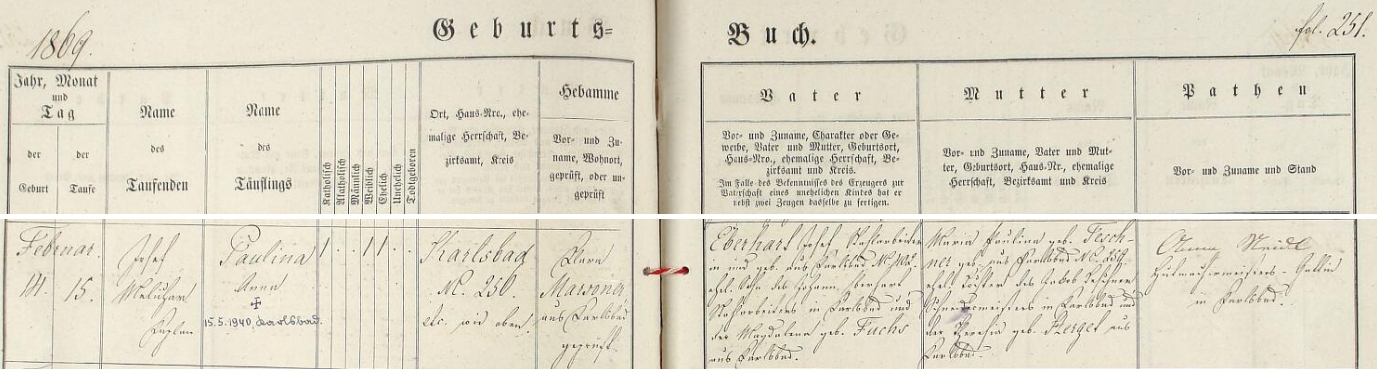 1869.
Geburts=
Buch.
fol. 251.
Jahr, Monat
und
Tag
der
Geburt
der
Taufe
Name
des
Taufenden
Name
des
Täuflings
Katholisch
Akatholisch
Männlich
Weiblich
Ehelich
Unehelich
Todtgeboren
Ort, Haus-Nro., ehe-
malige Herrschaft, Be-
zirksamt, Kreis
Hebamme
Vor- und Zu-
name, Wohnort,
geprüft, oder un-
geprüft
Vater
Vor- und Zuname, Charakter oder Ge-
werbe, Vater und Mutter, Geburtsort,
Haus-Nro., ehemalige Herrschaft, Be-
zirksamt und Kreis.
Im Falle des Bekenntnisses des Erzeugers zur
Vaterschaft eines unehelichen Kindes hat er
nebst zwei Zeugen dasselbe zu fertigen.
Mutter
Vor- und Zuname, Vater und Mut-
ter, Geburtsort, Haus-Nr., ehemalige
Herrschaft, Bezirksamt und Kreis
Pathen
Vor- und Zuname und Stand
Februar
14.
15.
Josef
Kaplan
Paulina
Anna
15.5.1940, Karlsbad.
1 . . 1 1 . .
Karlsbad
N. 250.
etc. wie oben!
Clara
Marsoner
aus Karlsbad
geprüft.
Eberhart Josef
in und geb. aus Karlsbad
ehel. Sohn des Johann Eberhart
in Karlsbad und
der Magdalena geb. Fuchs
aus Karlsbad.
Maria Paulina geb. Tesch-
ner geb. aus Karlsbad N. 250.
ehel. Tochter des Jakob Teschner
Schneidermeisters in Karlsbad und
der Theresia geb. Kerget aus
Karlsbad.
Anna Neidl
Hutmachermeisters-Gattin
in Karlsbad.